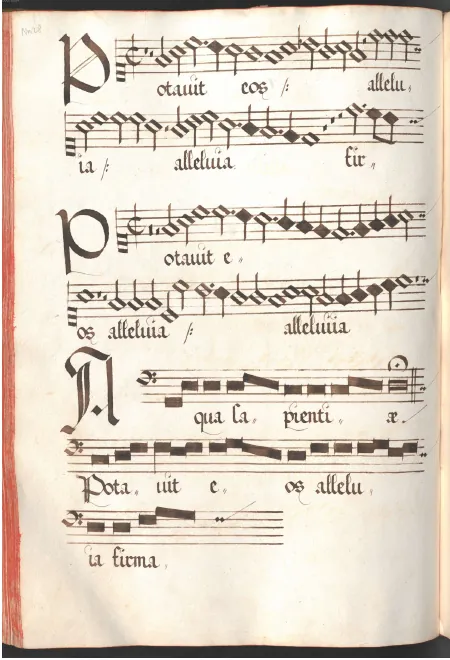 Potavit eos /: allelu,,
ia /: alleluia. fir,,
Potavit e,,
os alleluia /: alleluia
Aqua sa,, pienti,, æ.
Pota,, vit e,, os allelu,,
ia firma,,